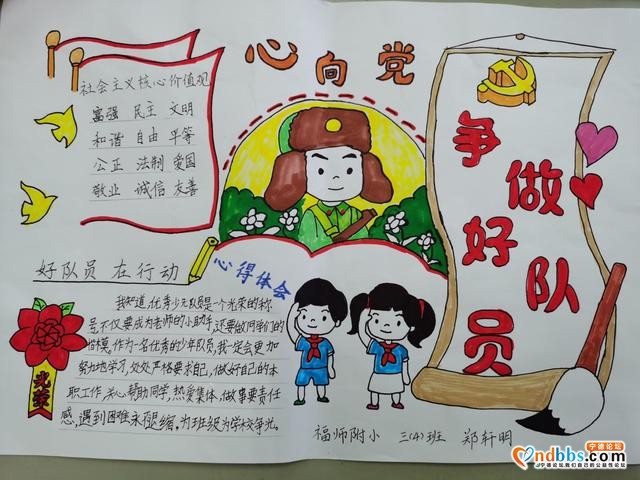 心向党
社会主义核心价值观
富强 民主 文明
和谐 自由 平等
公正 法制 爱国
敬业 诚信 友善
争做好队员
好队员 在行动
心得体会
我知道,优秀少先队员是一个光荣的称
号,不仅要成为老师的小助手,还要做同学们的
楷模。作为一名优秀的少年队员,我一定会更加
努力地学习,处处严格要求自己,做好自己的本
职工作,关心帮助同学,热爱集体,做事要责任
感,遇到困难永不退缩,为班级为学校争光。
光荣
福师附小 三(4)班 郑轩明
宁德论坛
ndbbs.com
宁德论坛|我们自己的公益性论坛